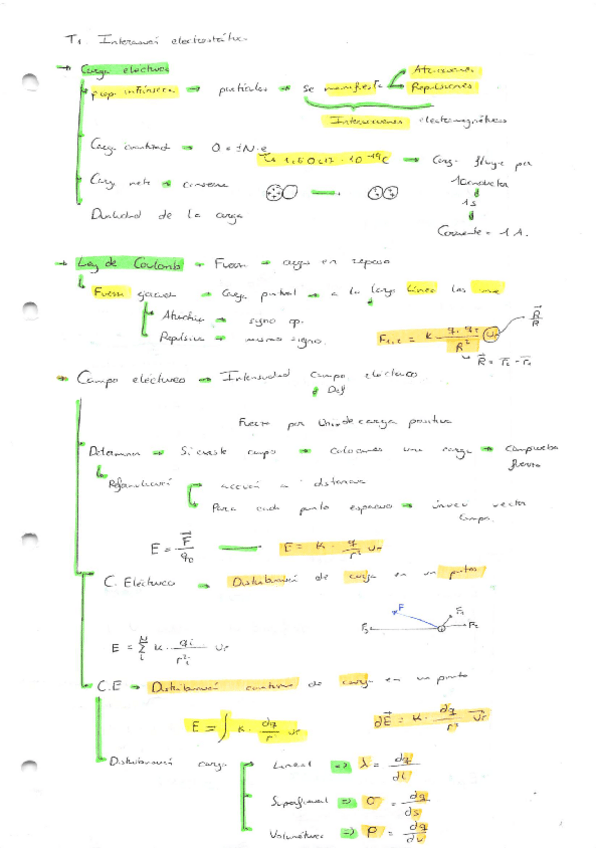 T1 Interacción electrostática
→ Carga eléctrica
Atracciones
prop intrínseca → partículas → Se manifiesta
Repulsiones
Interacciones electromagnéticas
Carga cuantizada → Q = ±N·e
1,6 0217 · 10⁻¹⁹ C → Carga fluye por
1 conductor
Carga neta → conserva
1 s
Dualidad de la carga
Corriente = 1 A.
→ Ley de Coulomb → Fuerza → cargas en reposo
Fuerza ejercida → Carga puntual → a lo largo línea las une
Atractiva → signo op.
Repulsiva → mismo signo.
F₁,₂ = K q₁ q₂ / R² u_r
R⃗ / R
R⃗ = r⃗₂ - r⃗₁
→ Campo eléctrico → Intensidad campo eléctrico
Def
Fuerza por Unidad de carga positiva
Determinar → Si existe campo → Colocamos una carga → Comprueba fuerza
acción a distancia
Para cada punto espacio → único vector campo.
E = F⃗ / q₀ → E = K · q / r² u_r
C. Eléctrico → Distribución de carga en un puntos
F
F₁
F₃ F₂
E = Σ K · qᵢ / rᵢ² u_r
C.E → Distribución continua de carga en un punto
E = ∫ K · dq / r² u_r dE⃗ = K · dq / r² u⃗_r
Distribución carga → Lineal ⇒ λ = dq / dl
Superficial ⇒ σ = dq / ds
Volumétrica ⇒ ρ = dq / dv